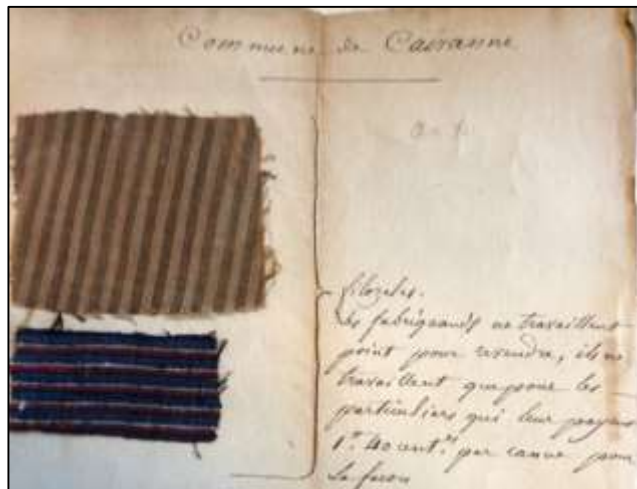 Commune de Cairanne
filozeles.
les fabriquands ne travaillent
point pour revendre, ils ne
travaillent que pour les
particuliers qui leur payent
1f. 40 cent.es par canne pour
la facon